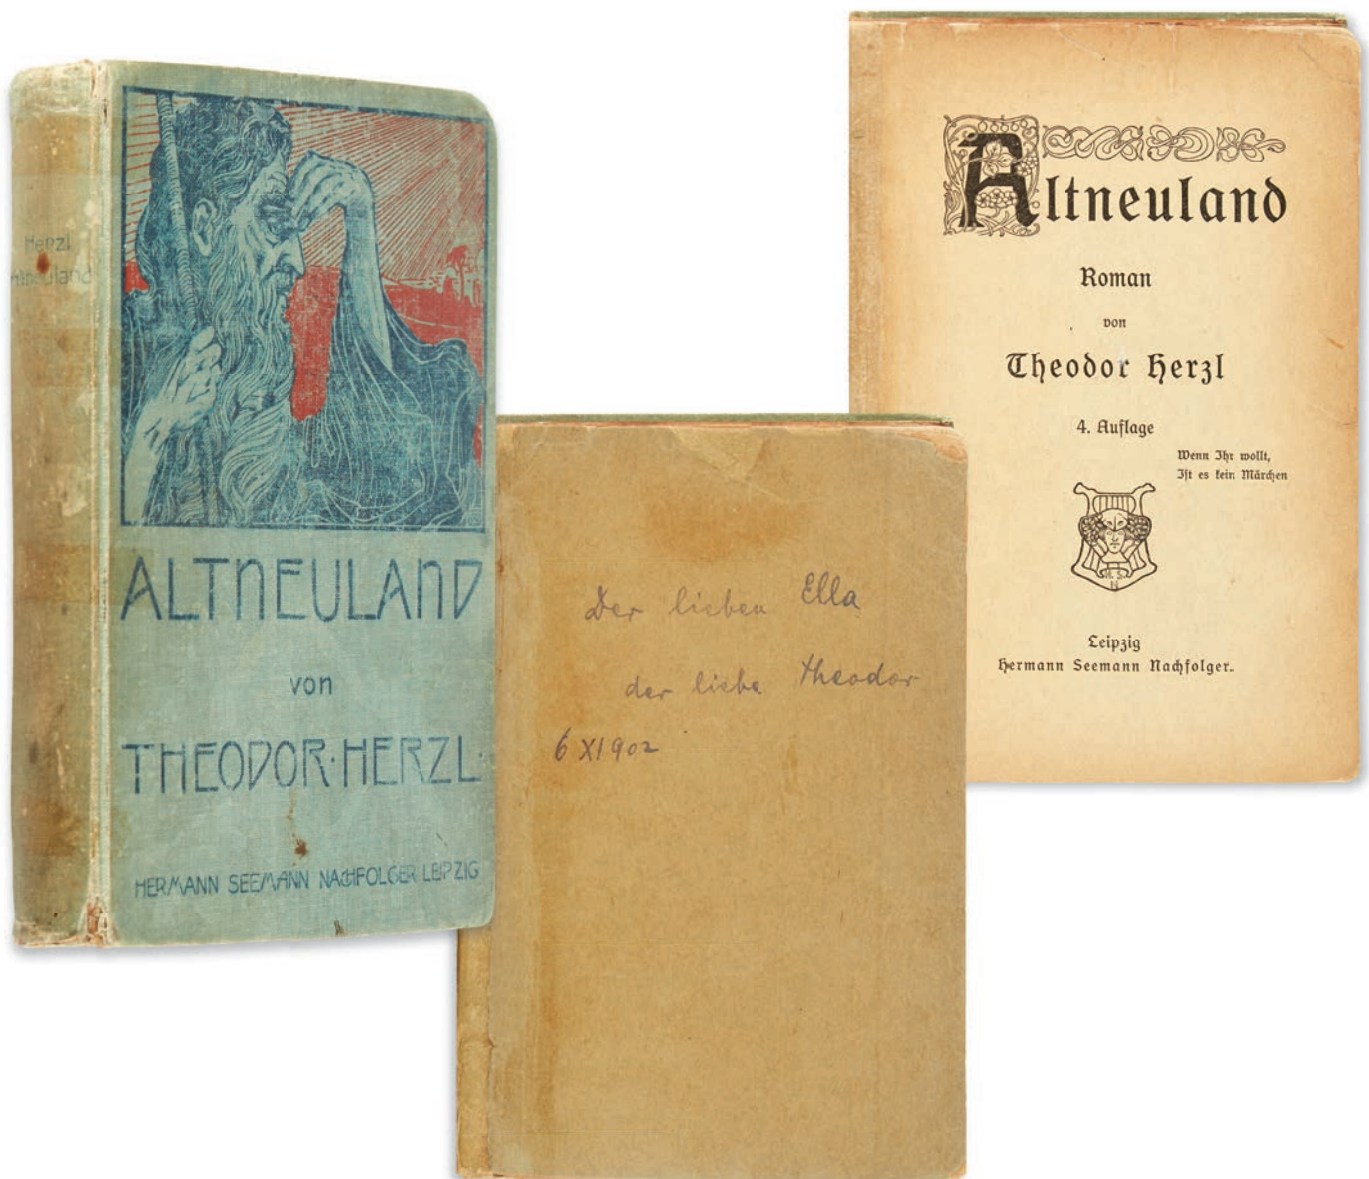 Herzl
Altneuland
ALTNEULAND
von
THEODOR·HERZL·
HERMANN SEEMANN NACHFOLGER LEIPZIG
Der lieben Ella
der liebe Theodor
6 XI 902
Altneuland
Roman
von
Theodor Herzl
4. Auflage
Wenn Ihr wollt,
Ist es kein Märchen
H. S.
N.
Leipzig
Hermann Seemann Nachfolger.